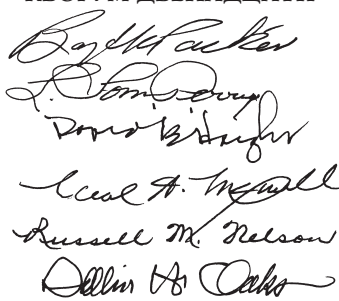 КВОРУМ ДВЕНАДЦАТИ
Boyd K Packer
L. Tom Perry
David B. Haight
Neal A. Maxwell
Russell M. Nelson
Dallin H. Oaks